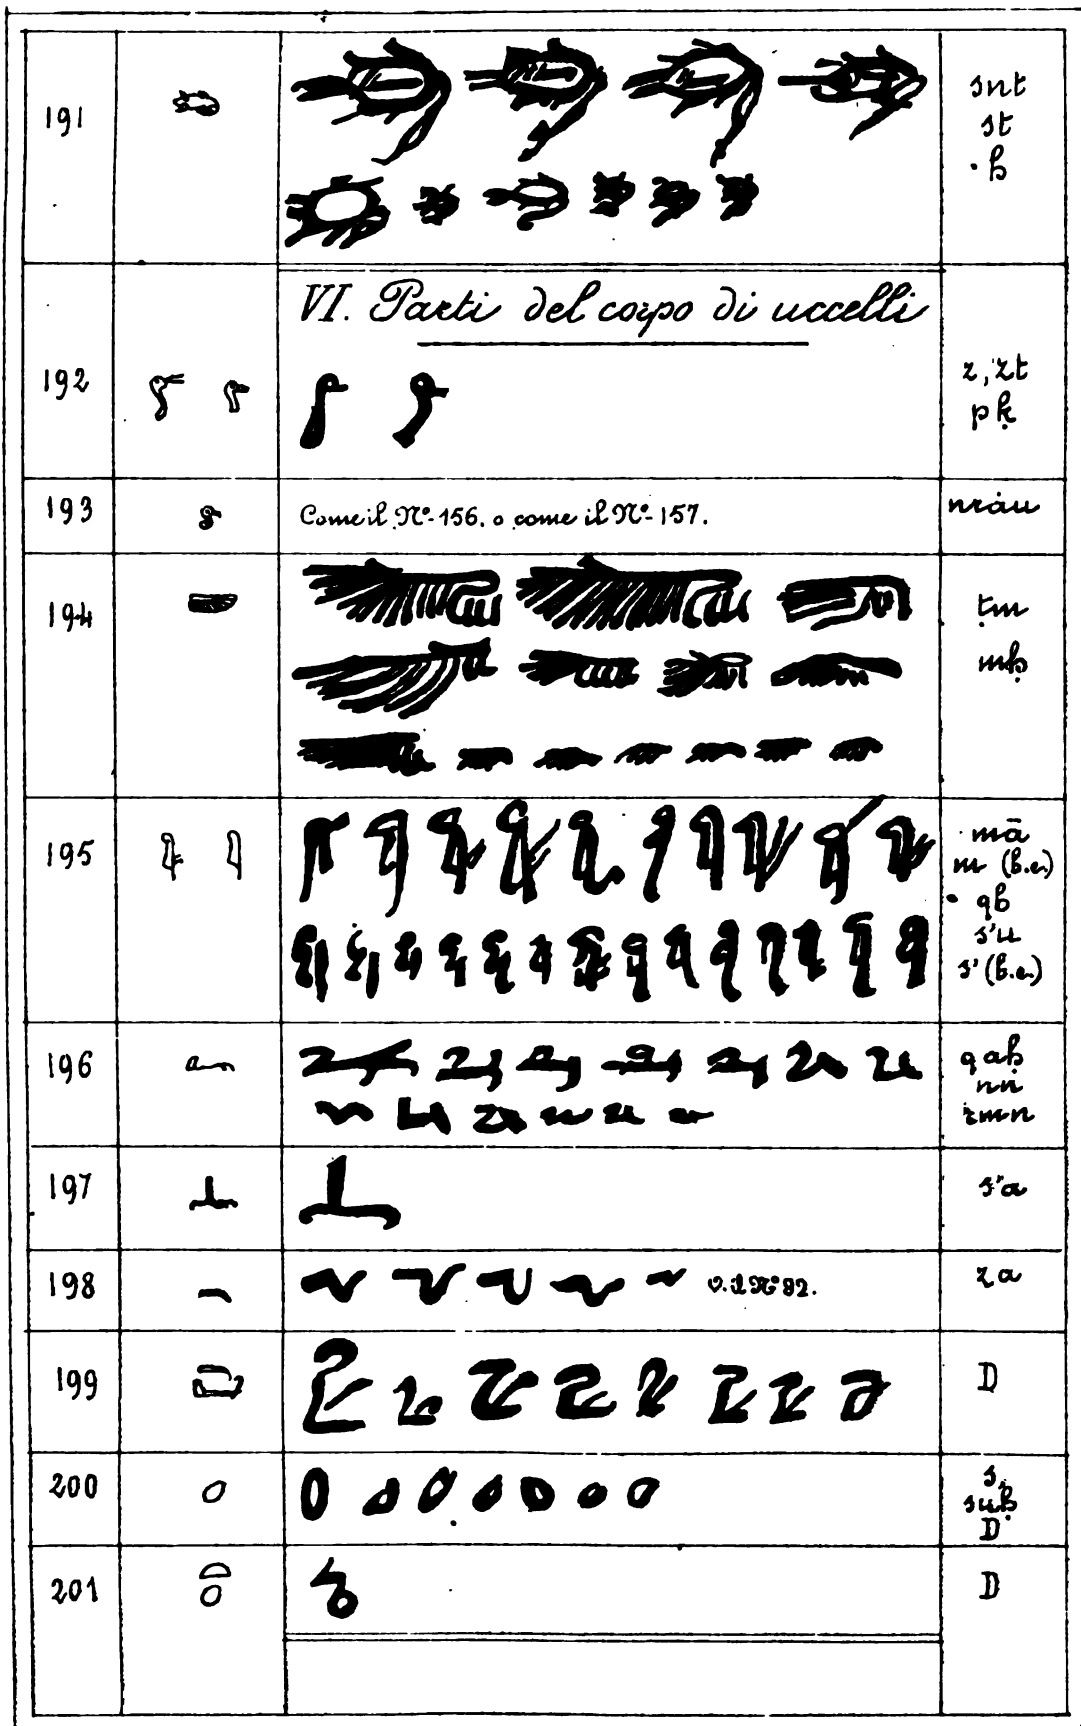 191
snt
st
·ḥ
VI. Parti del corpo di uccelli
192
z, zt
pḳ
193
Come il Nº-156. o come il Nº-157.
nràu
194
ṭm
mḥ
195
mā
m (b.e.)
qb
s'u
s' (b.e.)
196
qaḥ
nn
197
s'a
198
v. il Nº 92.
za
199
D
200
s,
suḥ
D
201
D